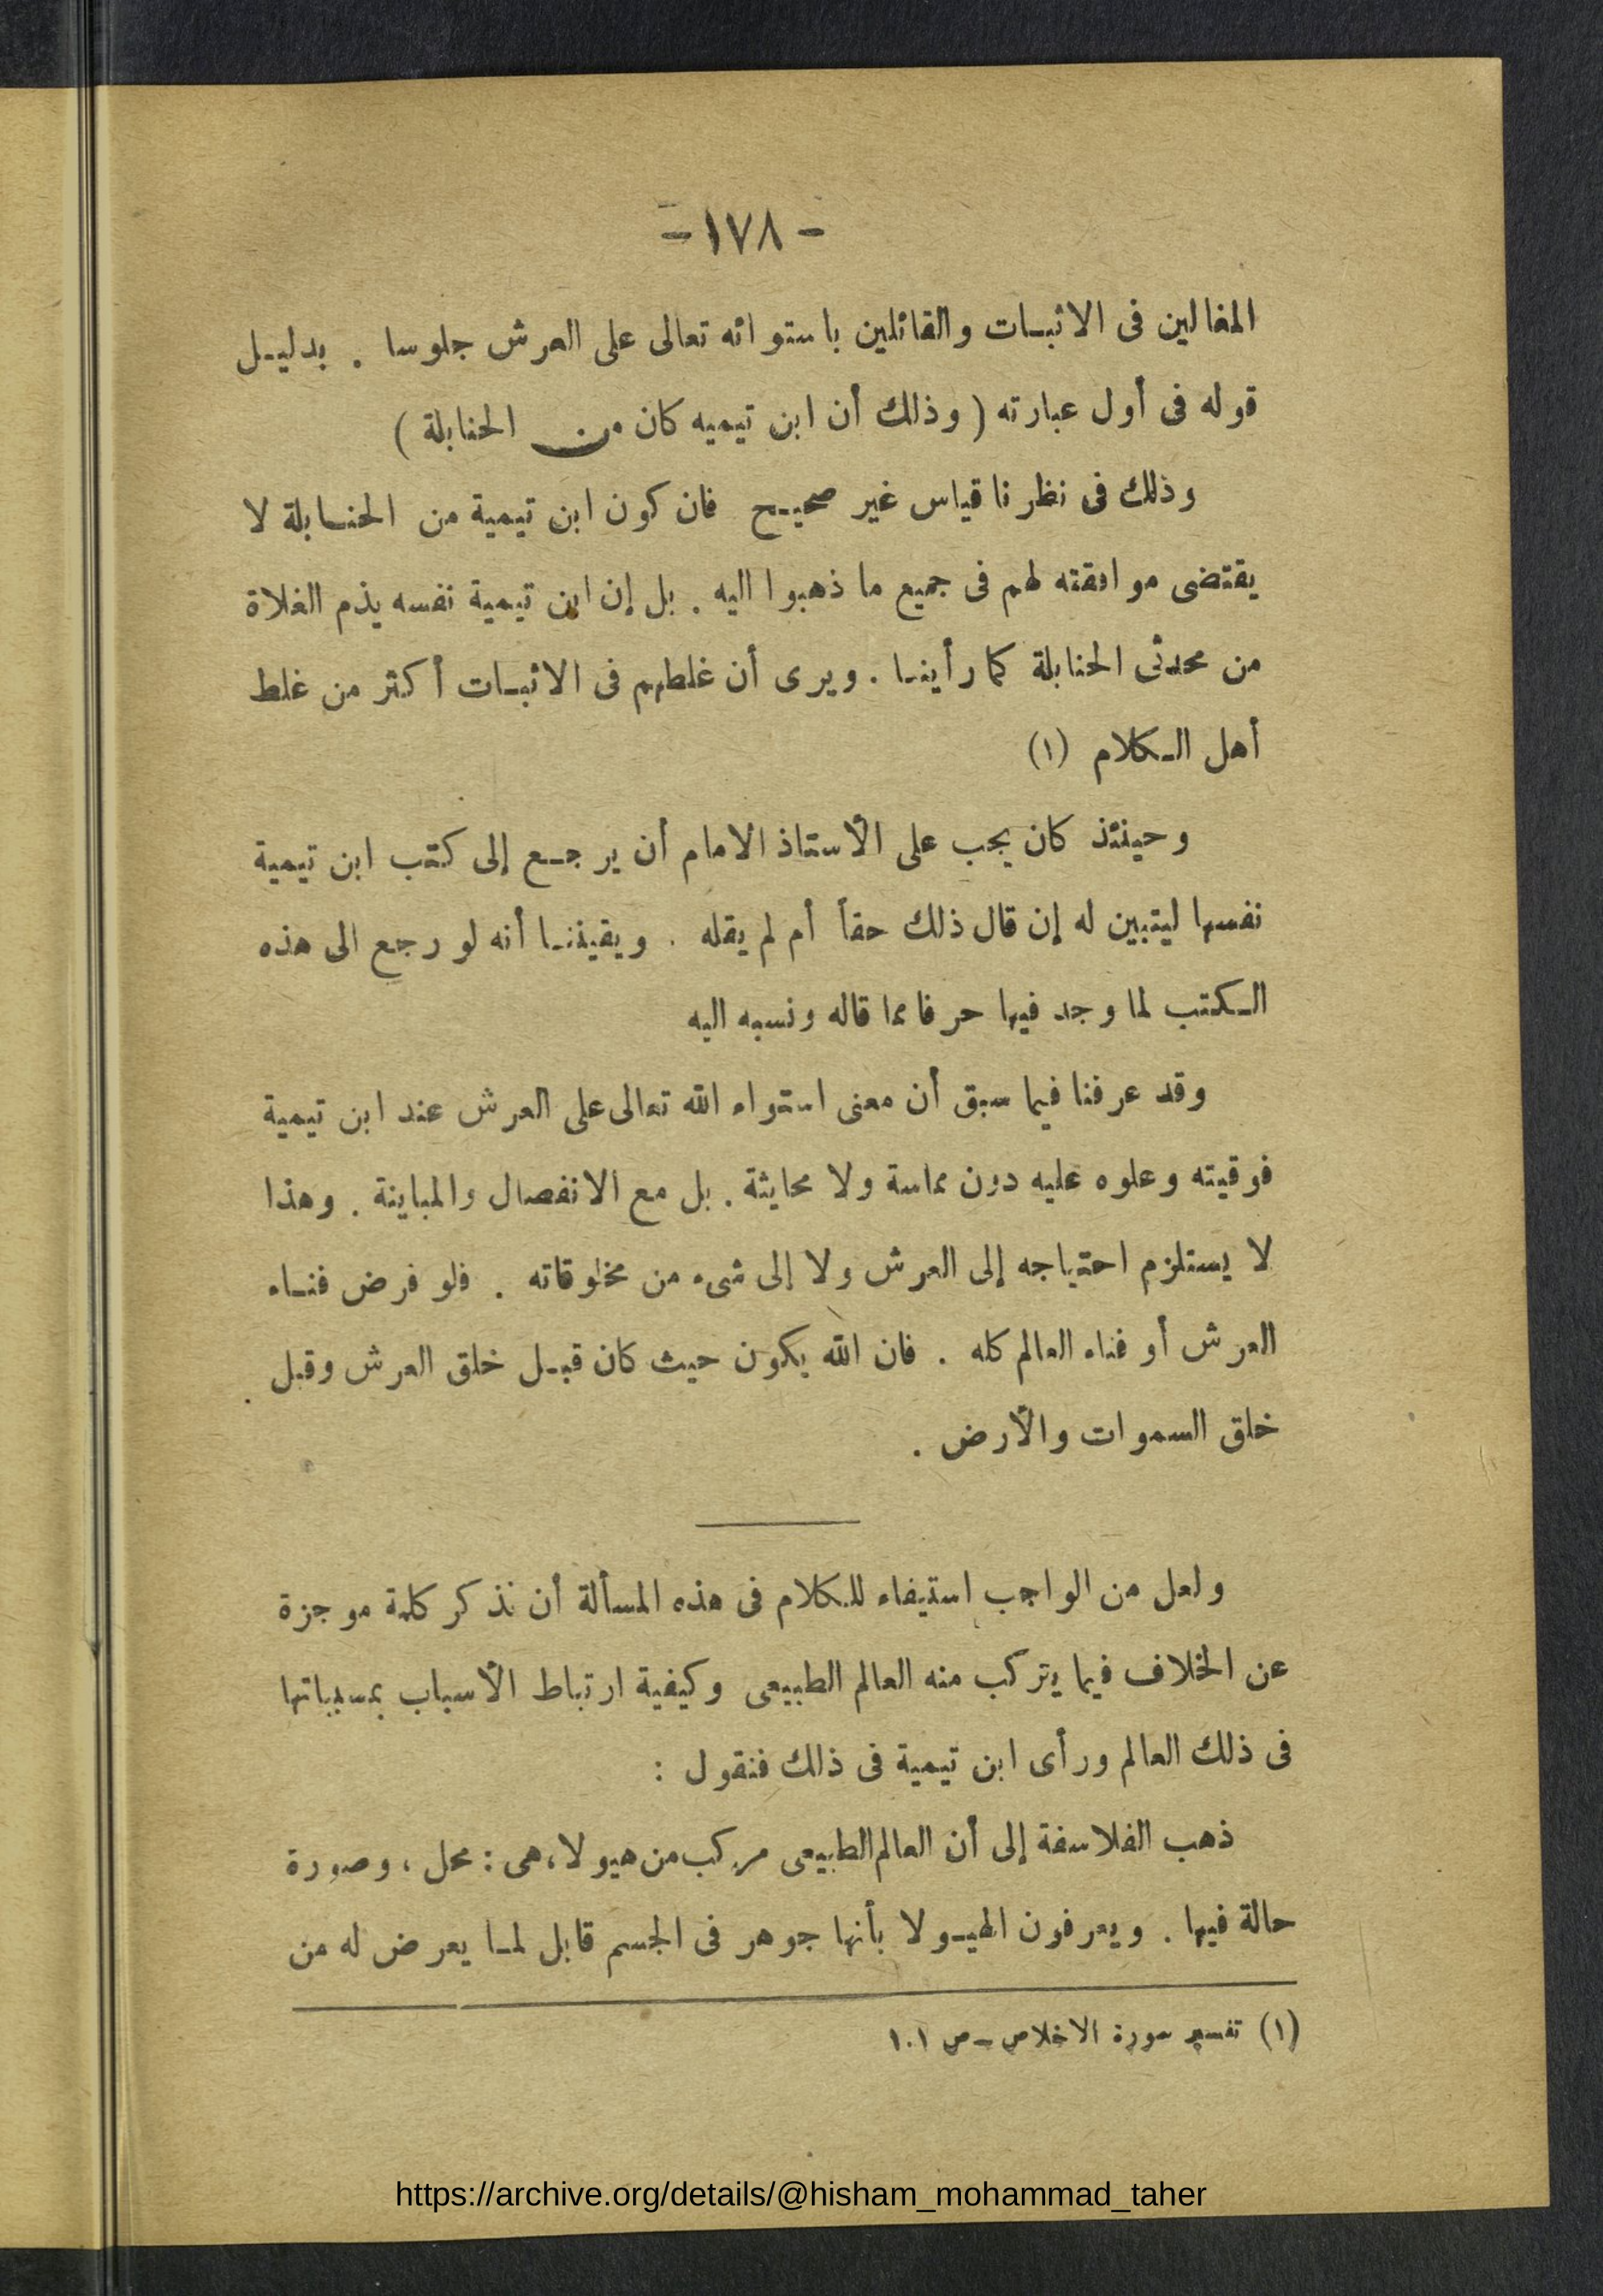 - ١٧٨ -
المغالين فى الاثبـات والقائلين باستوائه تعالى على العرش جلوسا . بدليـل
قوله فى أول عبارته ( وذلك أن ابن تيميه كان من الحنابلة )
وذلك فى نظرنا قياس غير صحيـح فان كون ابن تيمية من الحنـابلة لا
يقتضى موافقته لهم فى جميع ما ذهبوا اليه . بل إن ابن تيمية نفسه يذم الغلاة
من محدثى الحنابلة كما رأينـا . ويرى أن غلطهم فى الاثبـات أكثر من غلط
أهل الـكلام (١)
وحينئذ كان يجب على الأستاذ الامام أن يرجـع إلى كتب ابن تيمية
نفسها ليتبين له إن قال ذلك حقاً أم لم يقله . ويقيننـا أنه لو رجع الى هذه
الـكتب لما وجد فيها حرفا مما قاله ونسبه اليه
وقد عرفنا فيما سبق أن معنى استواء الله تعالى على العرش عند ابن تيمية
فوقيته وعلوه عليه دون مماسة ولا محايثة . بل مع الانفصال والمباينة . وهذا
لا يستلزم احتياجه إلى العرش ولا إلى شىء من مخلوقاته . فلو فرض فنـاء
العرش أو فناء العالم كله . فان الله يكون حيث كان قبـل خلق العرش وقبل
خلق السموات والأرض .
ولعل من الواجب استيفاء للكلام فى هذه المسألة أن نذكر كلمة موجزة
عن الخلاف فيما يتركب منه العالم الطبيعى وكيفية ارتباط الأسباب بمسبباتها
فى ذلك العالم ورأى ابن تيمية فى ذلك فنقول :
ذهب الفلاسفة إلى أن العالم الطبيعى مركب من هيولا، هى : محل ، وصورة
حالة فيها . ويعرفون الهيـولا بأنها جوهر فى الجسم قابل لمـا يعرض له من
(١) تفسير سورة الاخلاص ـ ص ١٠١
https://archive.org/details/@hisham_mohammad_taher